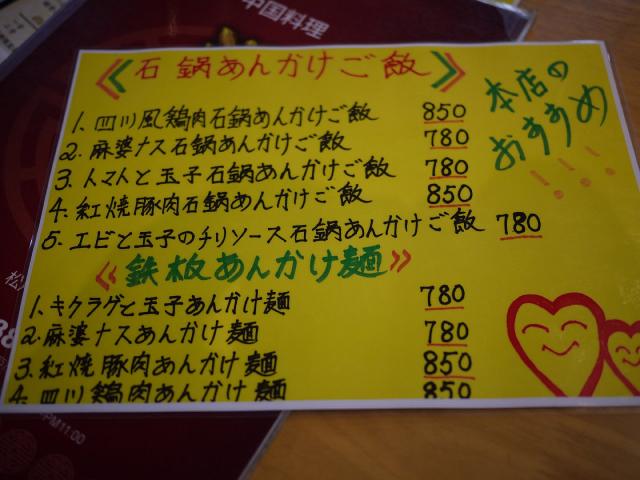 中国料理
《石鍋あんかけご飯》
本店の
おすすめ
!!!
1. 四川風鶏肉石鍋あんかけご飯 850
2. 麻婆ナス石鍋あんかけご飯 780
3. トマトと玉子石鍋あんかけご飯 780
4. 紅焼豚肉石鍋あんかけご飯 850
5. エビと玉子のチリソース石鍋あんかけご飯 780
《鉄板あんかけ麺》
1. キクラゲと玉子あんかけ麺 780
2. 麻婆ナスあんかけ麺 780
3. 紅焼豚肉あんかけ麺 850
4. 四川鶏肉あんかけ麺 850
PM11:00